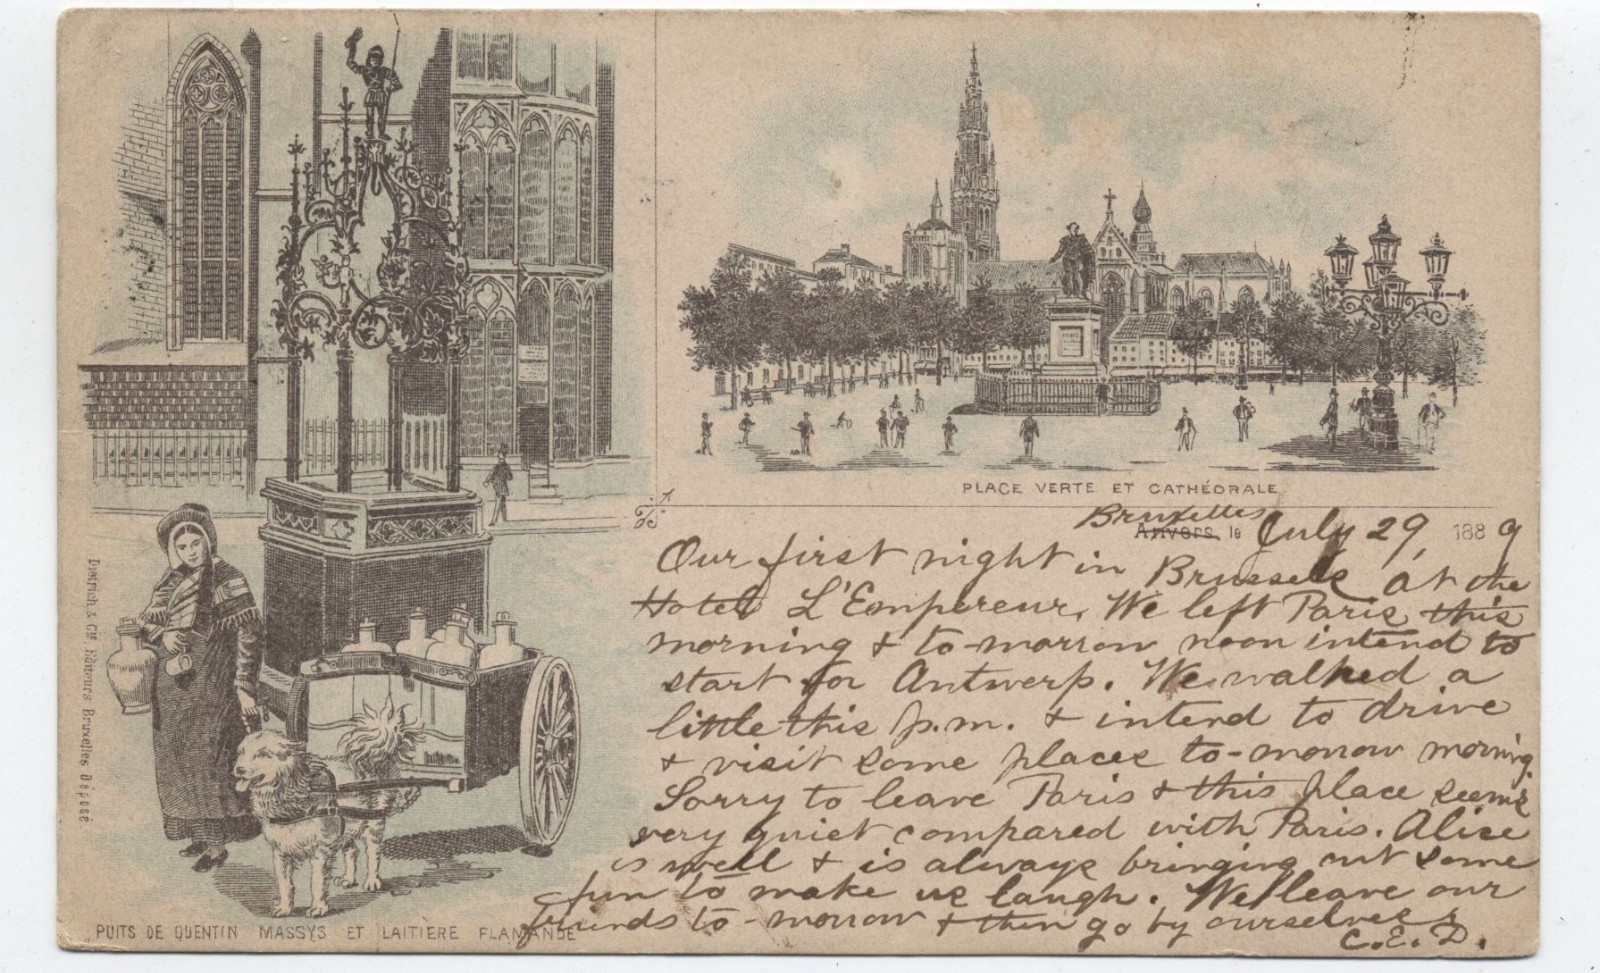 PLACE VERTE ET CATHÉDRALE
Bruxelles
Anvers, le July 29, 1889
Our first night in Brussels at the
Hotel L'Empereur. We left Paris this
morning & to-morrow noon intend to
start for Antwerp. We walked a
little this p.m. & intend to drive
& visit some places to-morrow morning.
Sorry to leave Paris & this place seems
very quiet compared with Paris. Alice
is well & is always bringing out some
fun to make us laugh. We leave our
friends to-morrow & then go by ourselves.
C.E.D.
PUITS DE QUENTIN MASSYS ET LAITIÈRE FLAMANDE
Dietrich & Cie Editeurs Bruxelles Déposé